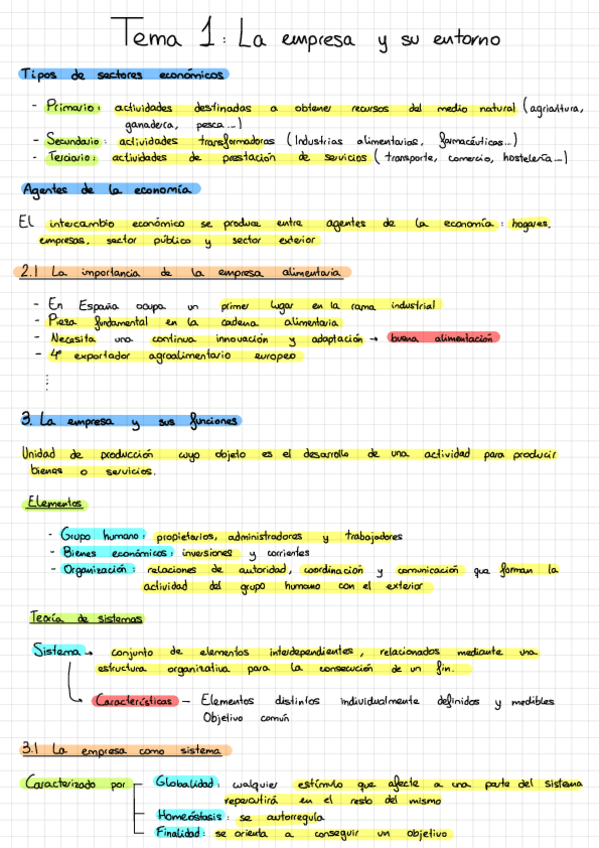 Tema 1: La empresa y su entorno
Tipos de sectores económicos
- Primario: actividades destinadas a obtener recursos del medio natural (agricultura,
ganadería, pesca...)
- Secundario: actividades transformadoras (Industrias alimentarias, farmacéuticas...)
- Terciario: actividades de prestación de servicios (transporte, comercio, hostelería...)
Agentes de la economía
El intercambio económico se produce entre agentes de la economía: hogares,
empresas, sector público y sector exterior
2.1 La importancia de la empresa alimentaria
- En España ocupa un primer lugar en la rama industrial
- Pieza fundamental en la cadena alimentaria
- Necesita una continua innovación y adaptación → buena alimentación
- 4º exportador agroalimentario europeo
⋮
3. La empresa y sus funciones
Unidad de producción cuyo objeto es el desarrollo de una actividad para producir
bienes o servicios.
Elementos
- Grupo humano: propietarios, administradores y trabajadores
- Bienes económicos: inversiones y corrientes
- Organización: relaciones de autoridad, coordinación y comunicación que forman la
actividad del grupo humano con el exterior
Teoría de sistemas
Sistema → conjunto de elementos interdependientes, relacionados mediante una
estructura organizativa para la consecución de un fin.
Características - Elementos distintos individualmente definidos y medibles
Objetivo común
3.1 La empresa como sistema
Caracterizado por Globalidad: cualquier estímulo que afecte a una parte del sistema
repercutirá en el resto del mismo
Homeóstasis: se autorregula
Finalidad: se orienta a conseguir un objetivo